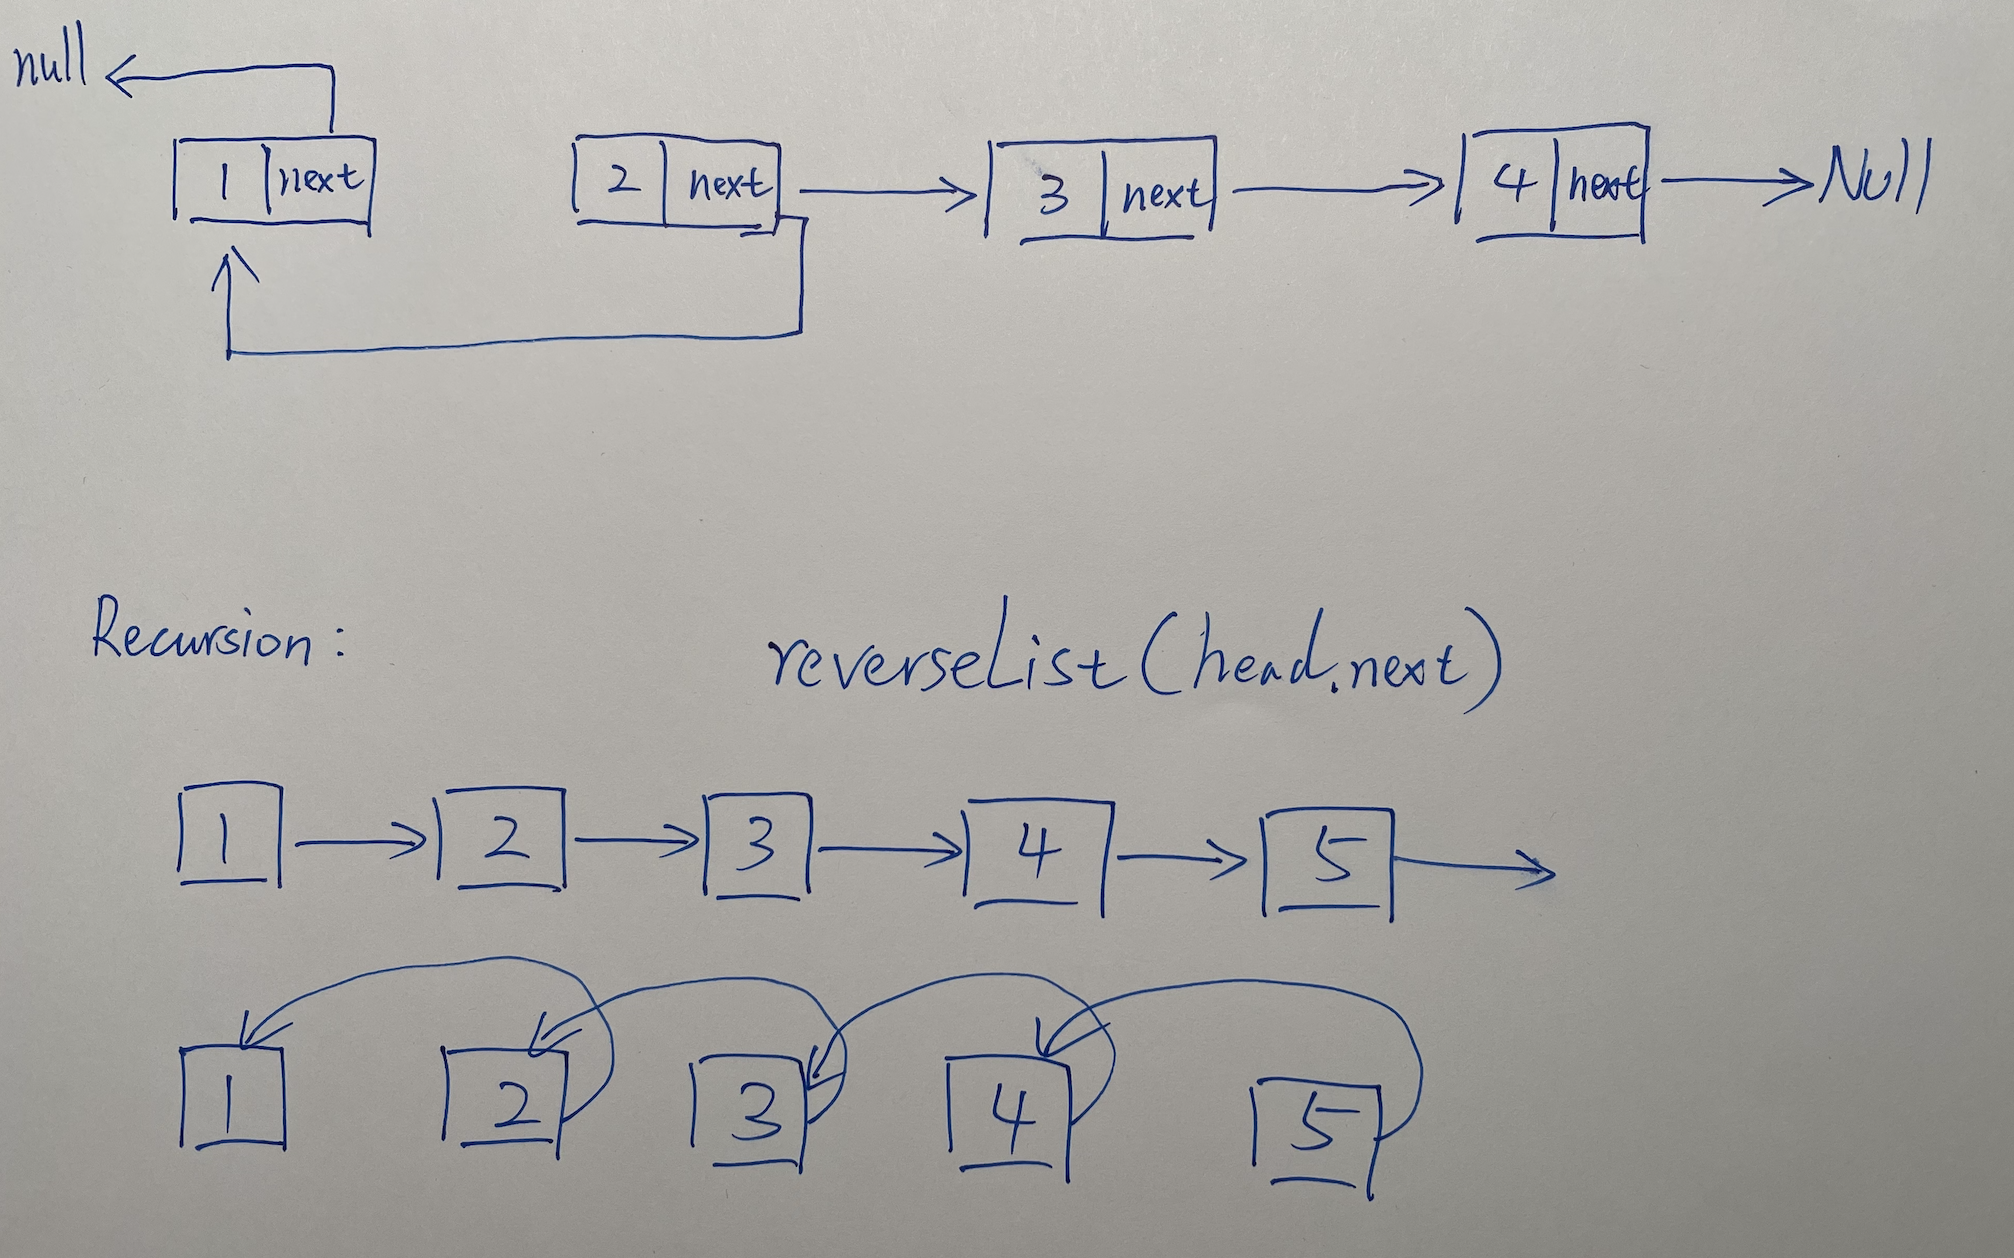 null
1 next 2 next 3 next 4 next Null
Recursion: reverseList(head.next)
1 2 3 4 5
1 2 3 4 5